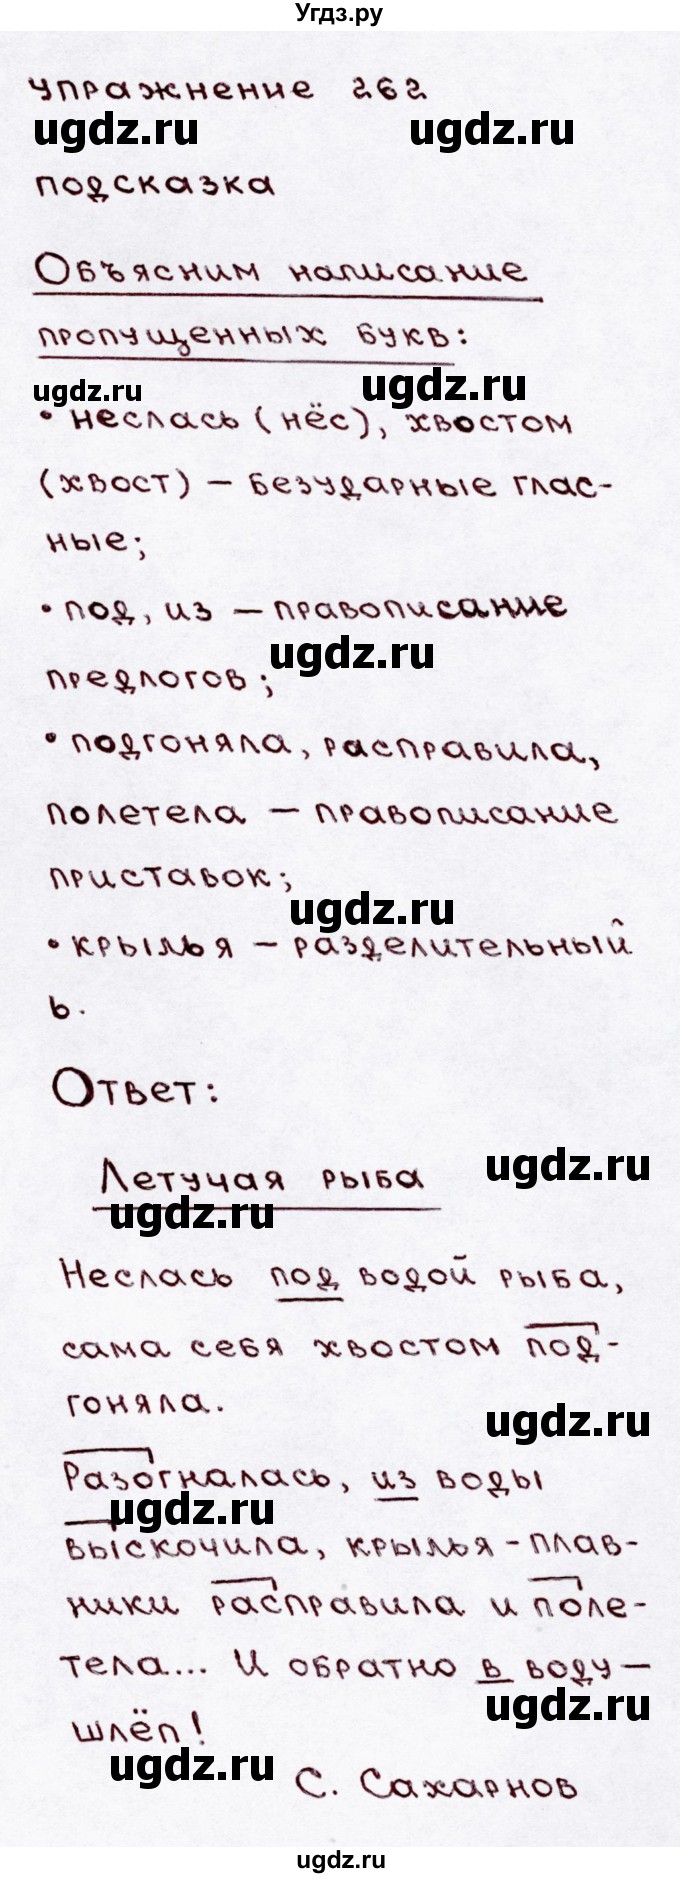 Угдз.ру
Упражнение 262
ugdz.ru ugdz.ru
подсказка
Объясним написание
пропущенных букв:
ugdz.ru ugdz.ru
• неслась (нёс), хвостом
(хвост) – безударные глас-
ные;
• под, из – правописание
ugdz.ru
предлогов;
• подгоняла, расправила,
полетела – правописание
приставок;
ugdz.ru
• крылья – разделительный
ь.
Ответ:
ugdz.ru
Летучая рыба
ugdz.ru
Неслась под водой рыба,
сама себя хвостом под-
гоняла.
ugdz.ru
Разогналась, из воды
ugdz.ru
выскочила, крылья-плав-
ники расправила и поле-
тела... И обратно в воду –
ugdz.ru
шлёп!
ugdz.ru
С. Сахарнов
ugdz.ru